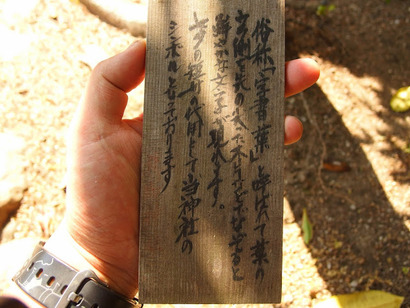 俗称「字書葉」と呼ばれて葉の
側を先の尖った木片などでなぞると
鮮かな文字が現れます。
の代用として当神社の
シンボルとなっております